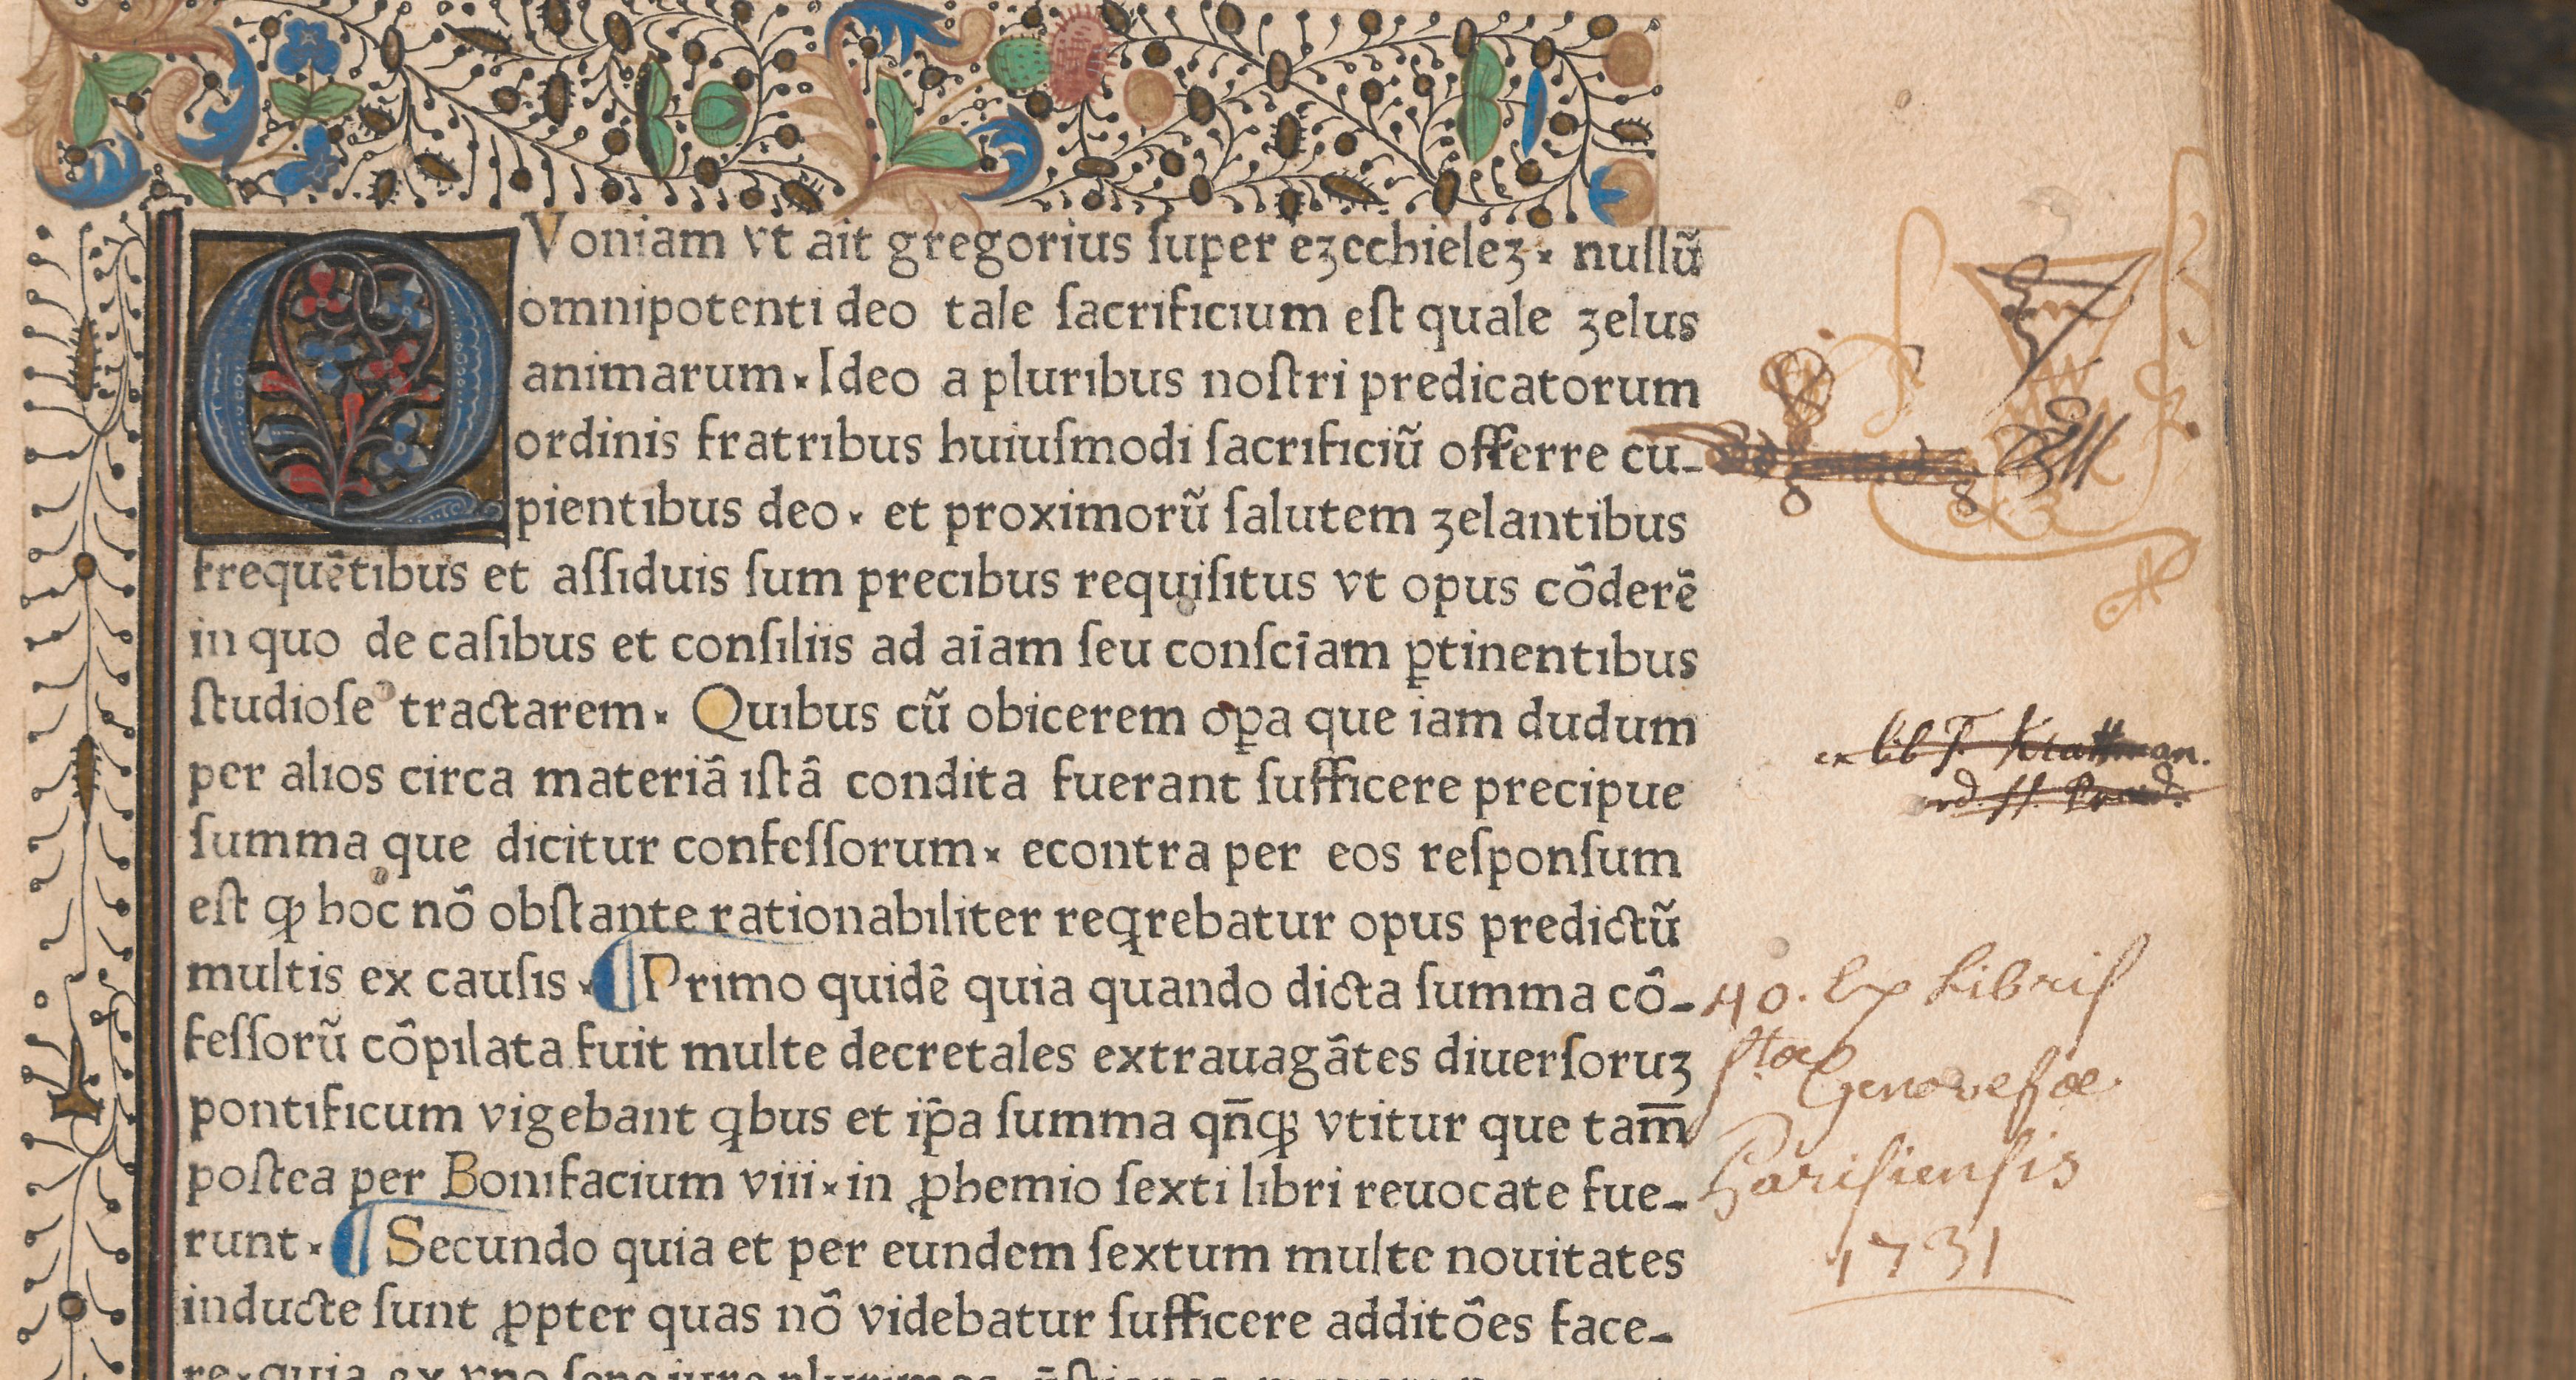 QVoniam vt ait gregorius ſuper eʒechieleʒ. nullũ
omnipotenti deo tale ſacrificium eſt quale ʒelus
animarum. Ideo a pluribus noſtri predicatorum
ordinis fratribus huiuſmodi ſacrificiũ offerre cu-
pientibus deo. et proximorũ ſalutem ʒelantibus
frequẽtibus et aſſiduis ſum precibus requiſitus vt opus cõderẽ
in quo de caſibus et conſiliis ad aīam ſeu conſcīam ꝑtinentibus
ſtudioſe tractarem. Quibus cũ obicerem oꝑa que iam dudum
per alios circa materiã iſtã condita fuerant ſufficere precipue
ſumma que dicitur confeſſorum. econtra per eos reſponſum
eſt ꝙ hoc nõ obſtante rationabiliter reqrebatur opus predictũ
multis ex cauſis. ¶ Primo quidẽ quia quando dicta ſumma cõ-
feſſorũ cõpilata fuit multe decretales extrauagãtes diuerſoruʒ
pontificum vigebant qbus et ip̃a ſumma qñꝙ vtitur que tam̄
poſtea per Bonifacium viii. in ꝓhemio ſexti libri reuocate fue-
runt. ¶ Secundo quia et per eundem ſextum multe nouitates
inducte ſunt ꝓpter quas nõ videbatur ſufficere additões face-
re. quia ex vno
ex lib F.
ord. ff. Præd.
40. Ex Libriſ
Stæ Genovefæ
Pariſienſis
1731